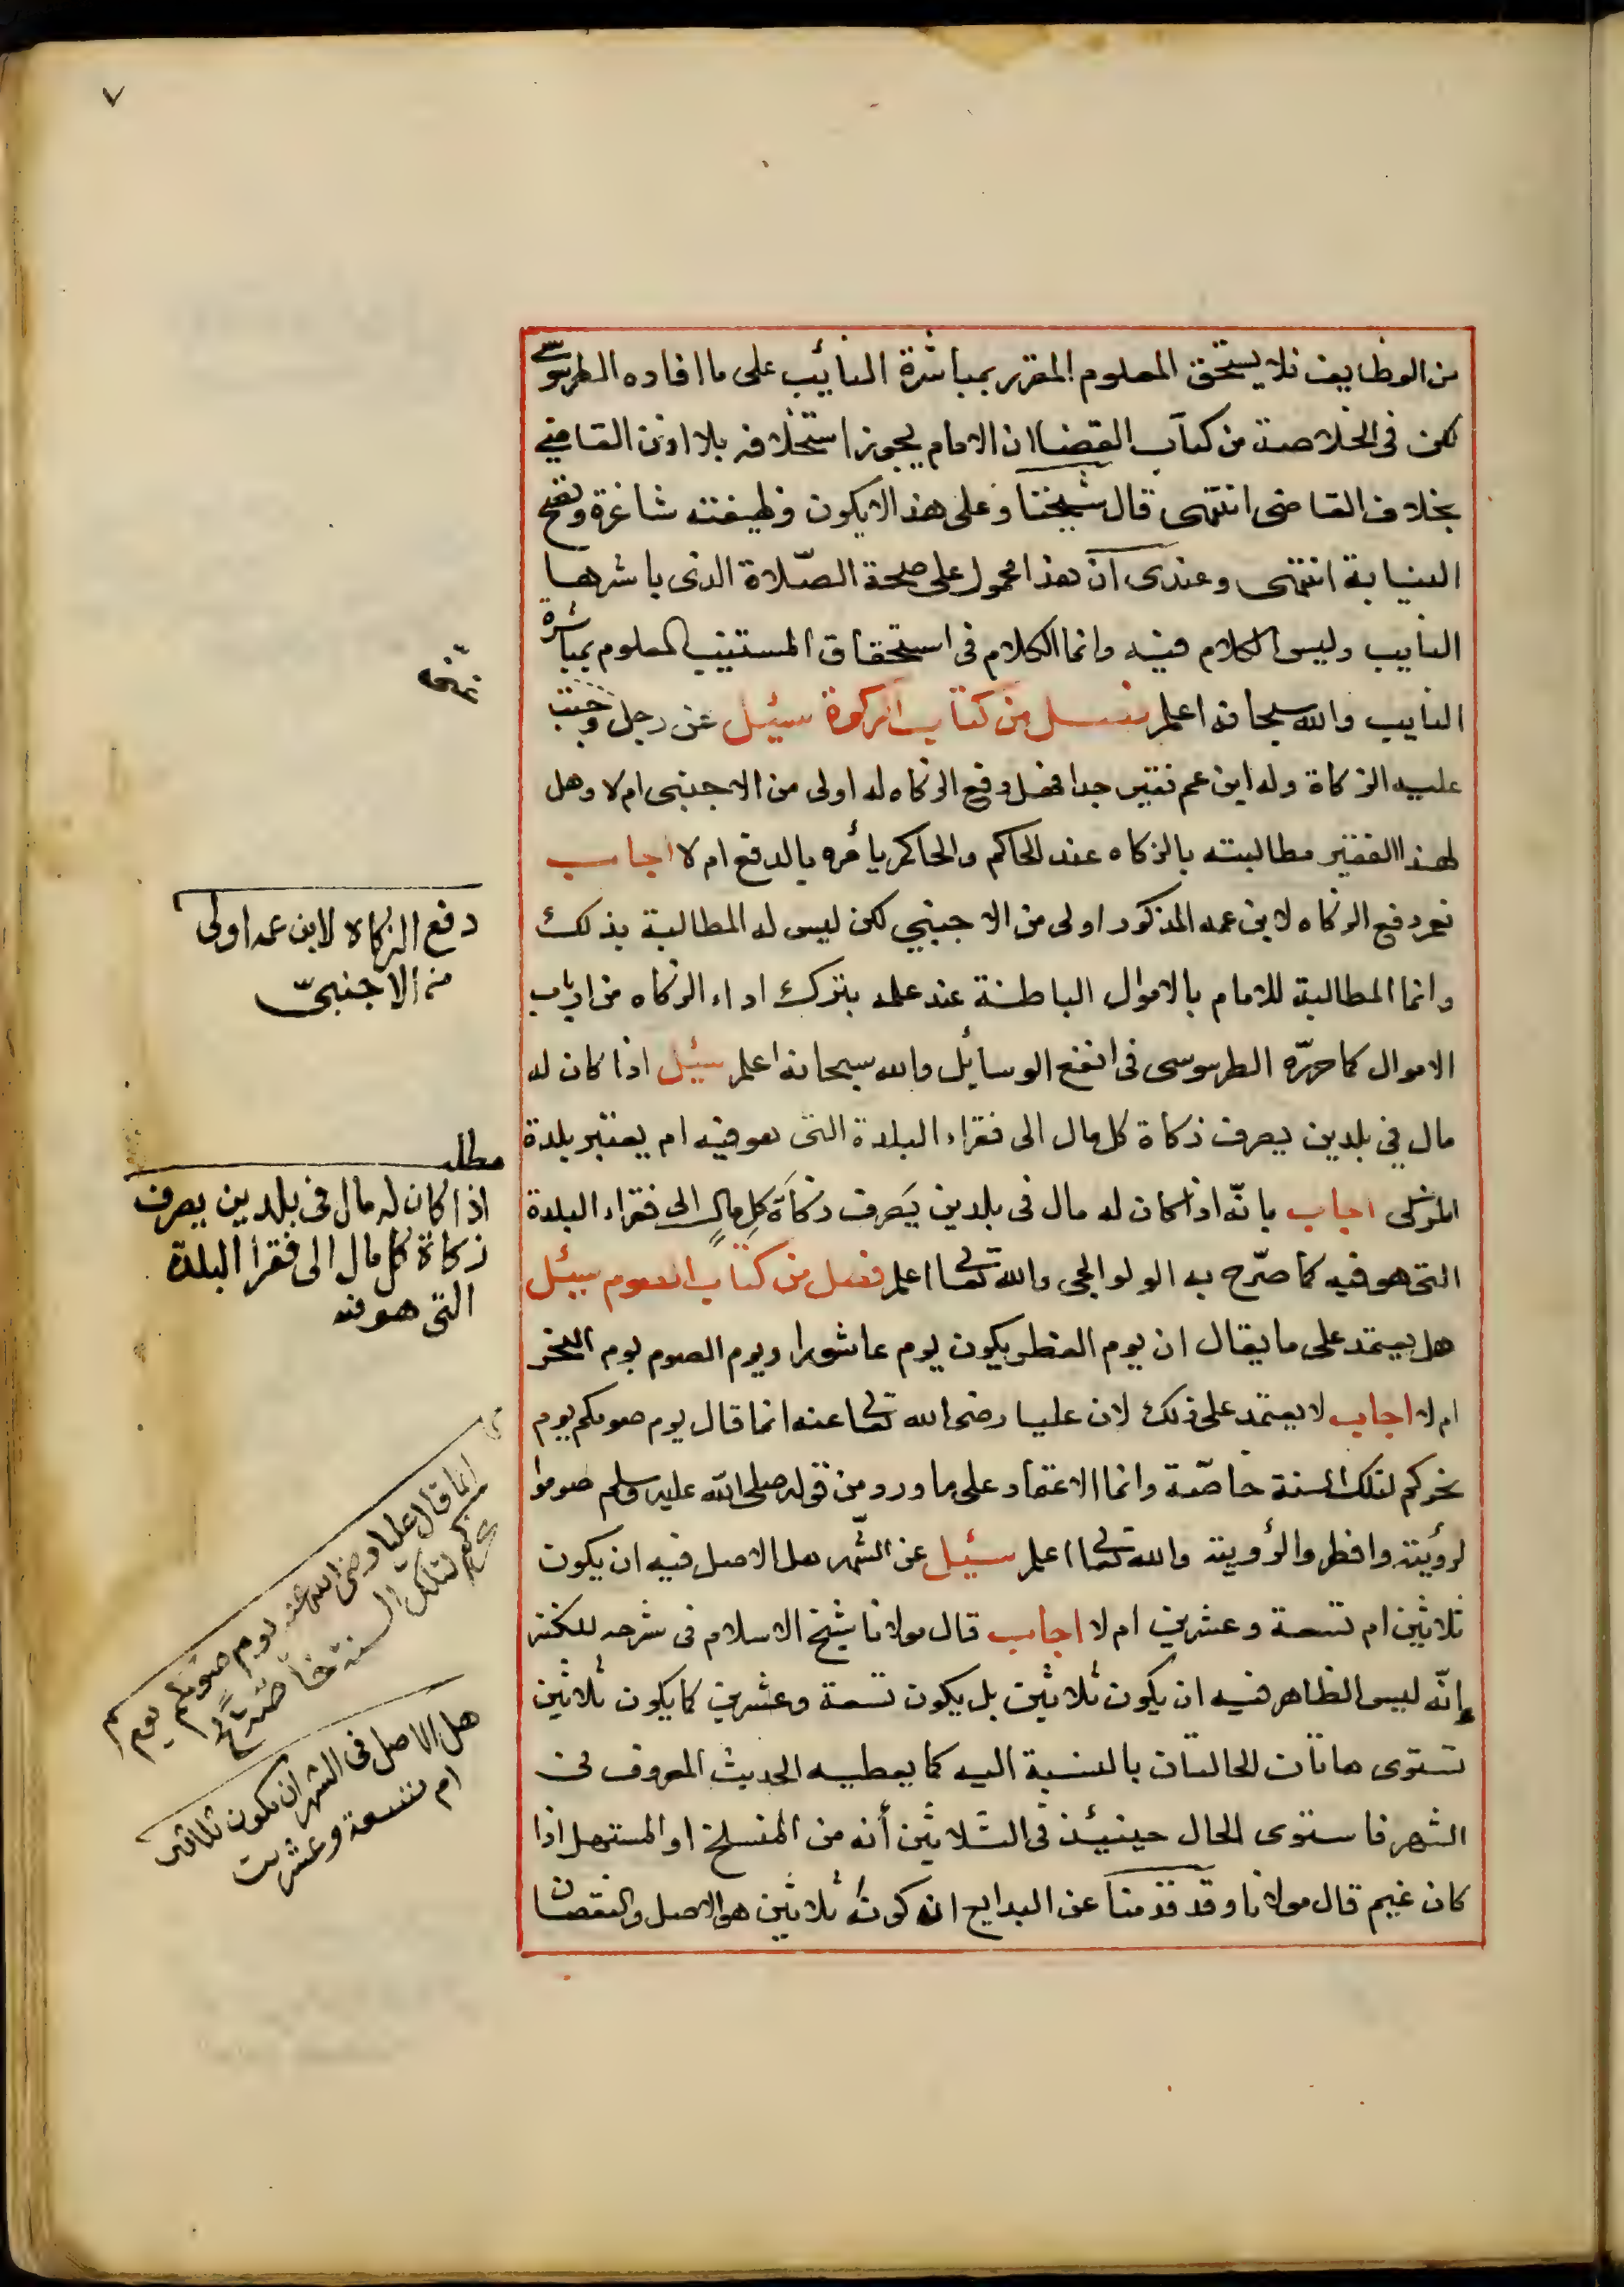 ٧
من الوظايف فلا يستحق المعلوم المقرر بمباشرة النائب على ما افاده الطرسوسي
لكن في الخلاصة من كتاب القضا ان الامام يجوز استخلافه بلا اذن القاضي
بخلاف القاضي انتهى قال شيخنا وعلى هذا لا يكون وظيفته شاغرة وتصح
النيابة انتهى وعندى ان هذا محمول على صحة الصّلاة الذى باشرها
النايب وليس الكلام فيه وانما الكلام في استحقاق المستنيب المعلوم بمباشرة
النايب والله سبحانه اعلم فصل من كتاب الزكوة سئيل عن رجل وجبت
عليه الزكاة وله ابن عم فقير جدا فهل دفع الزكاه له اولى من الاجنبى ام لا وهل
لهذا الفقير مطالبته بالزكاه عند الحاكم والحاكم يأمره بالدفع ام لا اجاب
نعم دفع الزكاه لابن عمه المذكور اولى من الاجنبي لكن ليس له المطالبة بذلك
وانما المطالبة للامام بالاموال الباطنة عند علمه بترك اداء الزكاه من ارباب
الاموال كما حرّره الطرسوسى فى انفع الوسائل والله سبحانه اعلم سئيل اذا كان له
مال في بلدين يصرف زكاة كل مال الى فقراء البلدة التى هو فيه ام يعتبر بلدة
المزكى اجاب بانّه اذا كان له مال فى بلدين يَصرف زكاَة كلِ مالٍ الى فقراء البلدة
التى هو فيه كما صرّح به الولوالجى والله تعالى اعلم فصل من كتاب الصوم سيئل
هل يعتمد على ما يقال ان يوم الفطر يكون يوم عاشورا ويوم الصوم يوم النحر
ام لا اجاب لا يعتمد على ذلك لان عليا رضى الله تعالى عنه انما قال يوم صومكم يوم
نحركم لتلك السنة خاصّة وانما الاعتماد على ما ورد من قوله صلى الله عليه وسلم صوموا
لرؤيته وافطروا لرؤويته والله تعالى اعلم سئيل عن الشّهر هل الاصل فيه ان يكون
ثلاثين ام تسعة وعشرين ام لا اجاب قال مولانا شيخ الاسلام فى شرحه للكنز
إنّه ليس الظاهر فيه ان يكون ثلاثين بل يكون تسعة وعشرين كما يكون ثلاثين
تستوى هاتان الحالتان بالنسبة اليه كما يعطيه الحديث المعروف فى
الشهر فاستوى الحال حينيئذ فى الثلاثين أنه من المنسلخ او المستهل اذا
كان غيم قال مولانا وقد قدمنا عن البدايع انه كونه ثلاثين هو الاصل والنقصان
دفع الزكاه لابن عمه اولى
من الاجنبىّ
مطلب
اذا كان له مال فى بلدين يصرف
زكاة كل مال الى فقرا البلدة
التى هو فيه
انما قال عليا رضى الله عنه يوم صومكم يوم
نحركم لتلك السنة خاصة
هل الاصل فى الشهر ان يكون ثلاثين
ام تسعة وعشرين